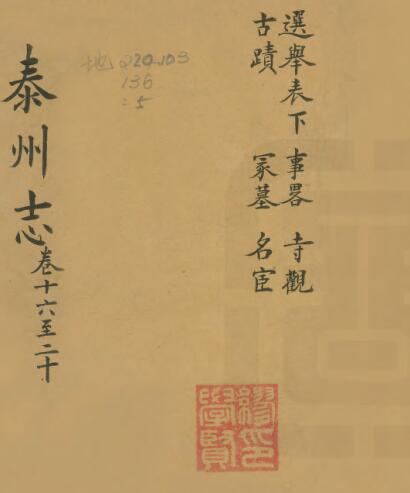 選舉表下 事畧 寺觀
古蹟 冢墓 名宦
地 220.103
136
:5
泰州志 卷十六至二十
繆印
學賢